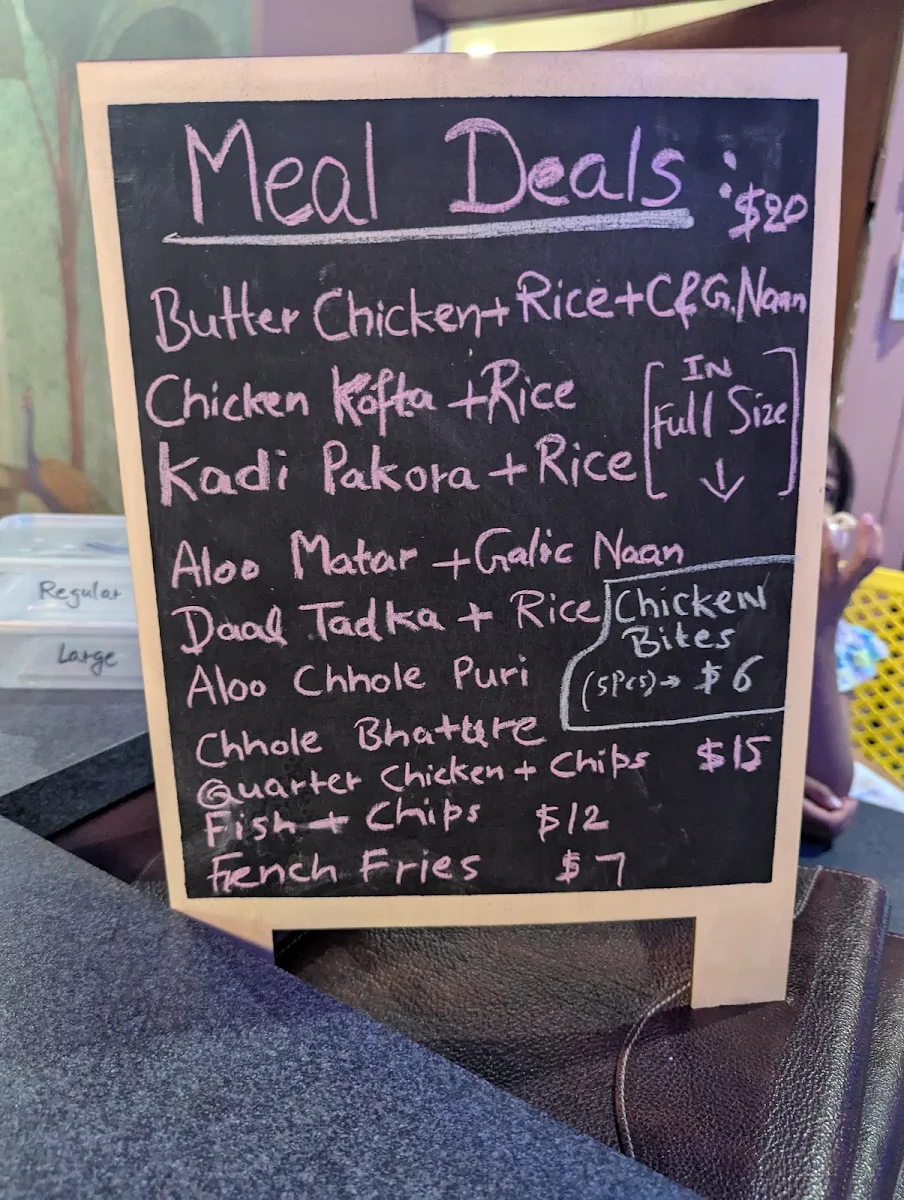 Meal Deals : $20
Butter Chicken + Rice + C&G. Naan
Chicken Kofta + Rice
Kadi Pakora + Rice
[IN
Full Size]
↓
Aloo Matar + Galic Naan
Daal Tadka + Rice
Aloo Chhole Puri
Chicken
Bites
(5Pcs)→ $6
Chhole Bhature
Quarter Chicken + Chips $15
Fish + Chips $12
French Fries $7
Regular
Large